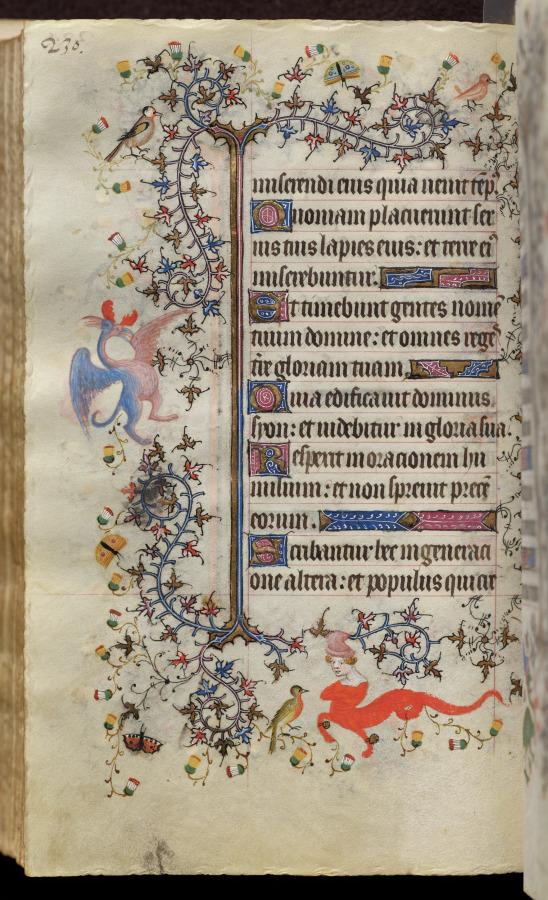 230.
miserendi eius quia uenit tēp̄
Quoniam placuerunt ser
uis tuis lapides eius: et terre ei᷒
miserebuntur.
Et timebunt gentes nomē
tuum domine: et omnes rege᷒
tr̄e gloriam tuam.
Quia edificauit dominus
syon: et uidebitur in gloria sua.
Respexit in oracionem hu
milium: et non spreuit precē
eorum.
Scribantur hec in generaci
one altera: et populus qui cr̄